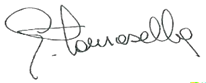 G. Tomasello